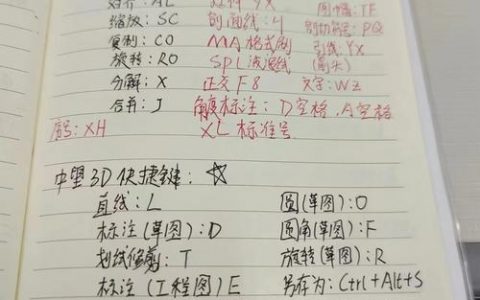 对齐:AL
缩放:SC 剖面线:H 图幅:TF
复制:CO MA格式刷 PQ
旋转:RO SPL波浪线 引线:YX
(箭头)
分解:X 正交F8 文字:WZ
合并:J 角度标注:D空格,A空格
序号:XH XL标准号
中望3D快捷键:☆
直线:L 圆(草图):O
标注(草图):D 圆角(草图):F
划线修剪:T 旋转(草图):R
标注(工程图)E 另存为:Ctrl+Alt+S